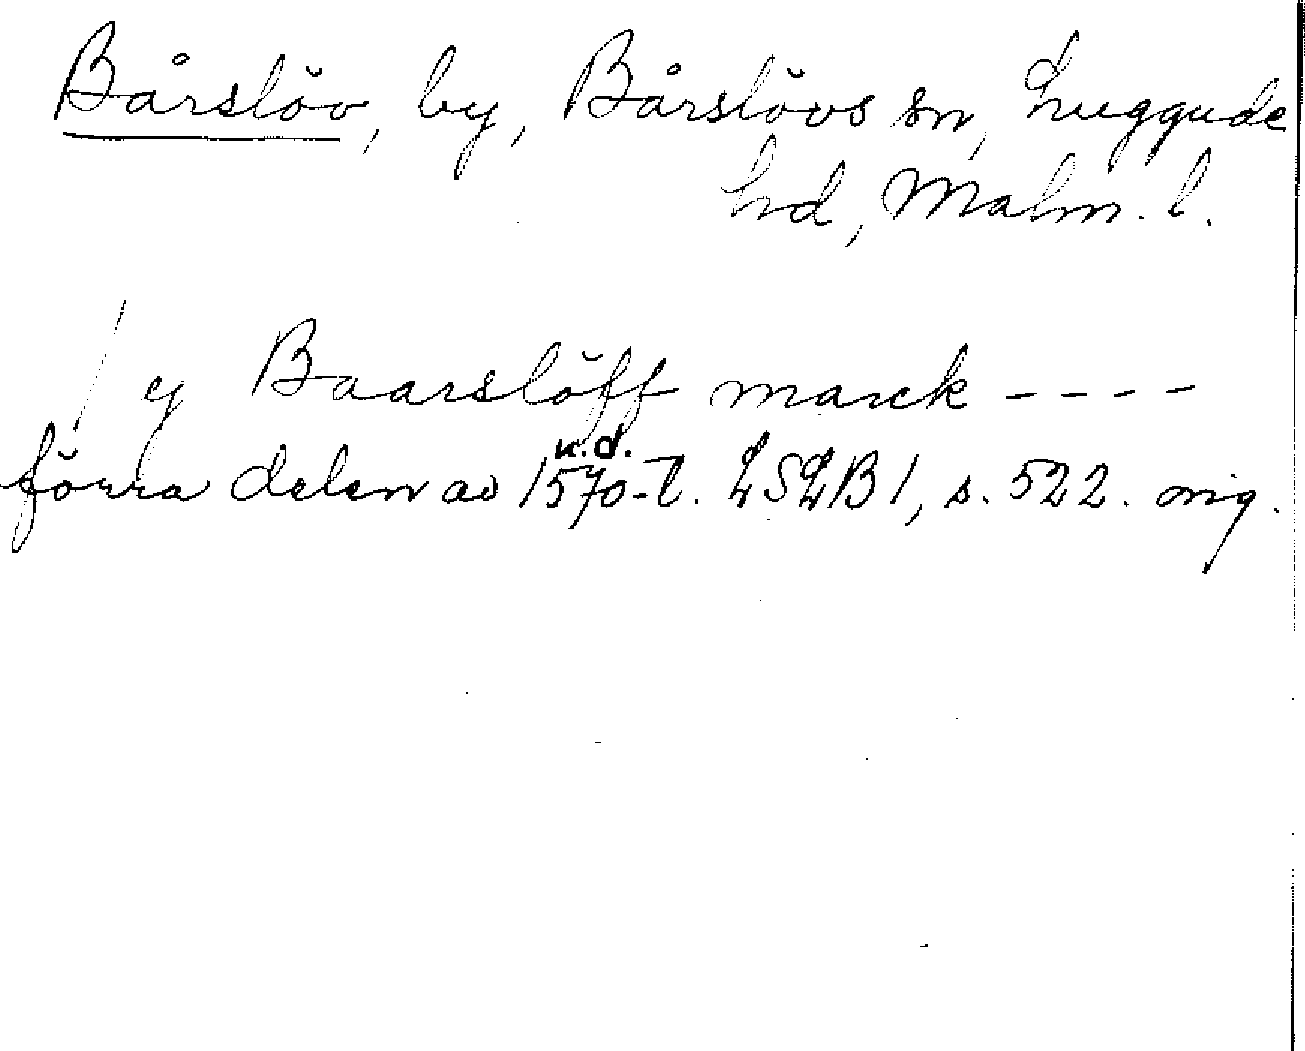 Bårslöv, by, Bårslövs sn, Luggude
hd, Malm. l.
y Baarslöff marck - - - -
u.d.
förra delen av 1570-t. LSLB 1, s. 522. orig.